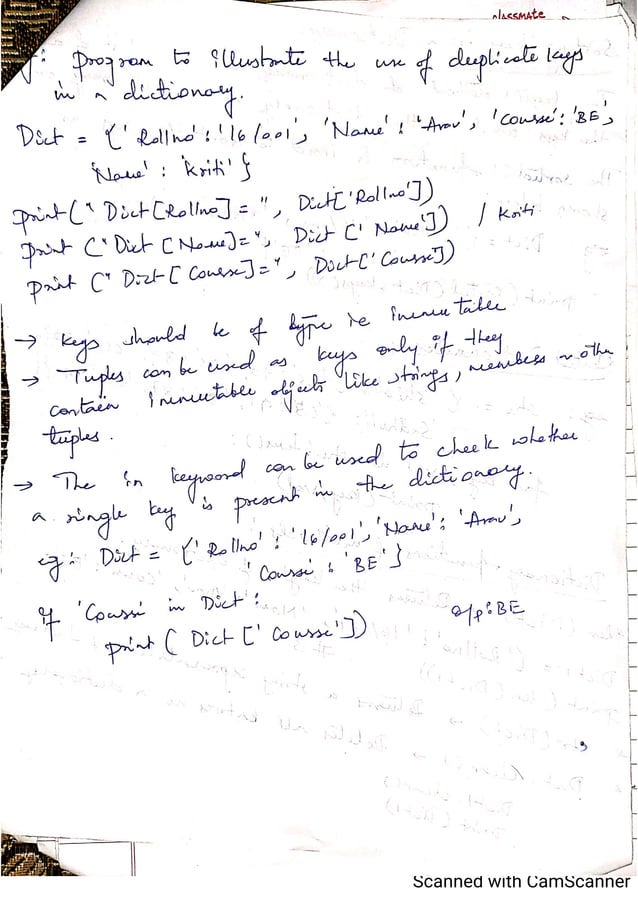 classmate
eg: Program to illustrate the use of duplicate keys
in a dictionary.
Dict = {'Rollno' : '16/001', 'Name' : 'Arav', 'Course' : 'BE',
'Name' : 'Kriti'}
print(" Dict[Rollno] = ", Dict['Rollno'])
print (" Dict [Name] = ", Dict [' Name']) / Kriti
print (" Dict [ Course] = ", Dict['Course'])
→ Keys should be of type ie immutable
→ Tuples can be used as keys only if they
contain immutable objects like strings, numbers or other
tuples.
→ The in keyword can be used to check whether
a single key is present in the dictionary.
eg: Dict = {'Rollno' : '16/001', 'Name' : 'Arav',
'Course' : 'BE'}
if 'Course in Dict':
print ( Dict [' Course']) o/p: BE
Scanned with CamScanner